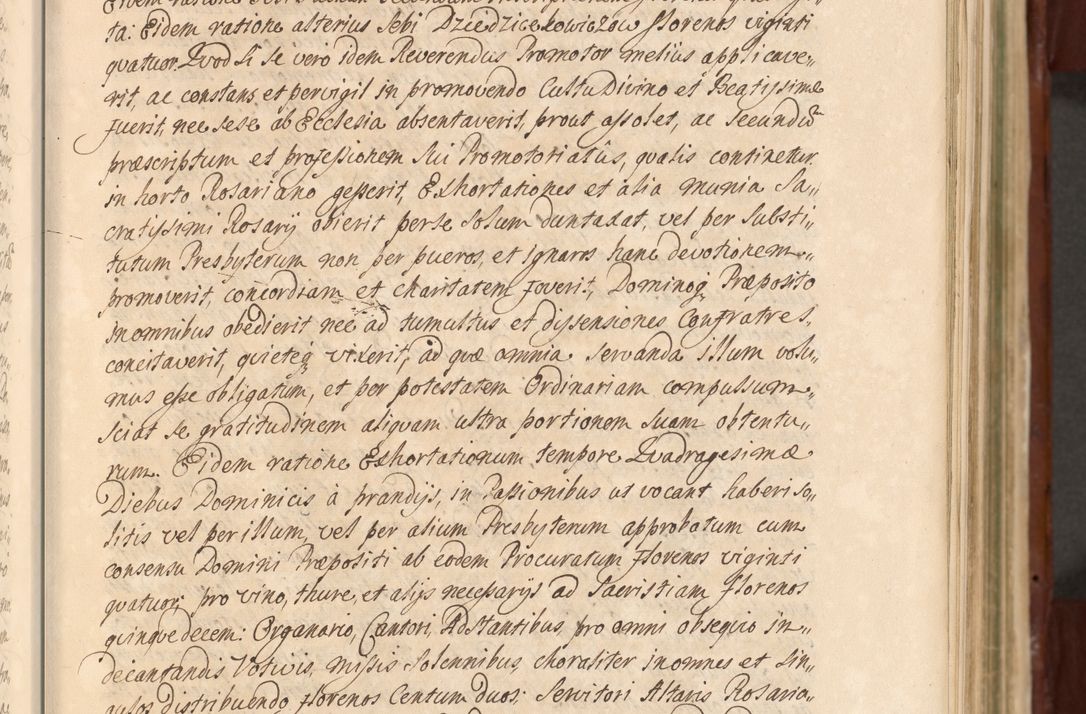 ta: Eidem ratione alterius Sebi Dzcedzicekowiczow florenos viginti
quatuor. Quod si se vero idem Reverendus Promotor melius applicave„
rit, ac constans et pervigil in promovendo Cultu Divino et Beatissimæ
fuerit, nec sese ab Ecclesia absentaverit, prout assolet, ac Secundũ
præscriptum et professionem Sui Promotoriatûs, qualis continetur
in horto Rosariano gesserit, Exhortationes et alia munia Sa„
cratissimi Rosarij obierit per se solum duntaxat, vel per Substi„
tutum Presbyterum non per pueros, et ignaros hanc devotionem„
promoverit, concordiam et charitatem foverit, Dominoq Præposito
in omnibus obedierit nec ad tumultus et dissensiones Confratres„
concitaverit, quieteq vixerit, ad quæ omnia servanda illum volu„
mus esse obligatum, et per potestatem Ordinariam compulsum„
Sciat se gratitudinem aliquam ultra portionem suam obtentu„
rum. Eidem ratione Exhortationum tempore Quadragesimæ
Diebus Dominicis à prandijs, in Passionibus ut vocant haberi so„
litis vel per illum, vel per alium Presbyterum approbatum cum
consensu Domini Præpositi ab eodem Procuratum florenos viginti
quatuor; pro vino, thure, et alijs necessarijs ad Sacristiam florenos
quinquedecem: Organario, Cantori, Adstantibus, pro omni obsequio in„
decantandis Votivis, missis solennibus, choraliter in omnes et Sin„
gulos distribuendo florenos Centum duos; Servitori Altaris Rosaria„